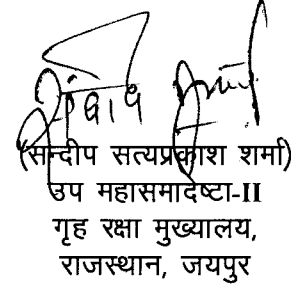 (सन्दीप सत्यप्रकाश शर्मा)
उप महासमादेष्टा-II
गृह रक्षा मुख्यालय,
राजस्थान, जयपुर